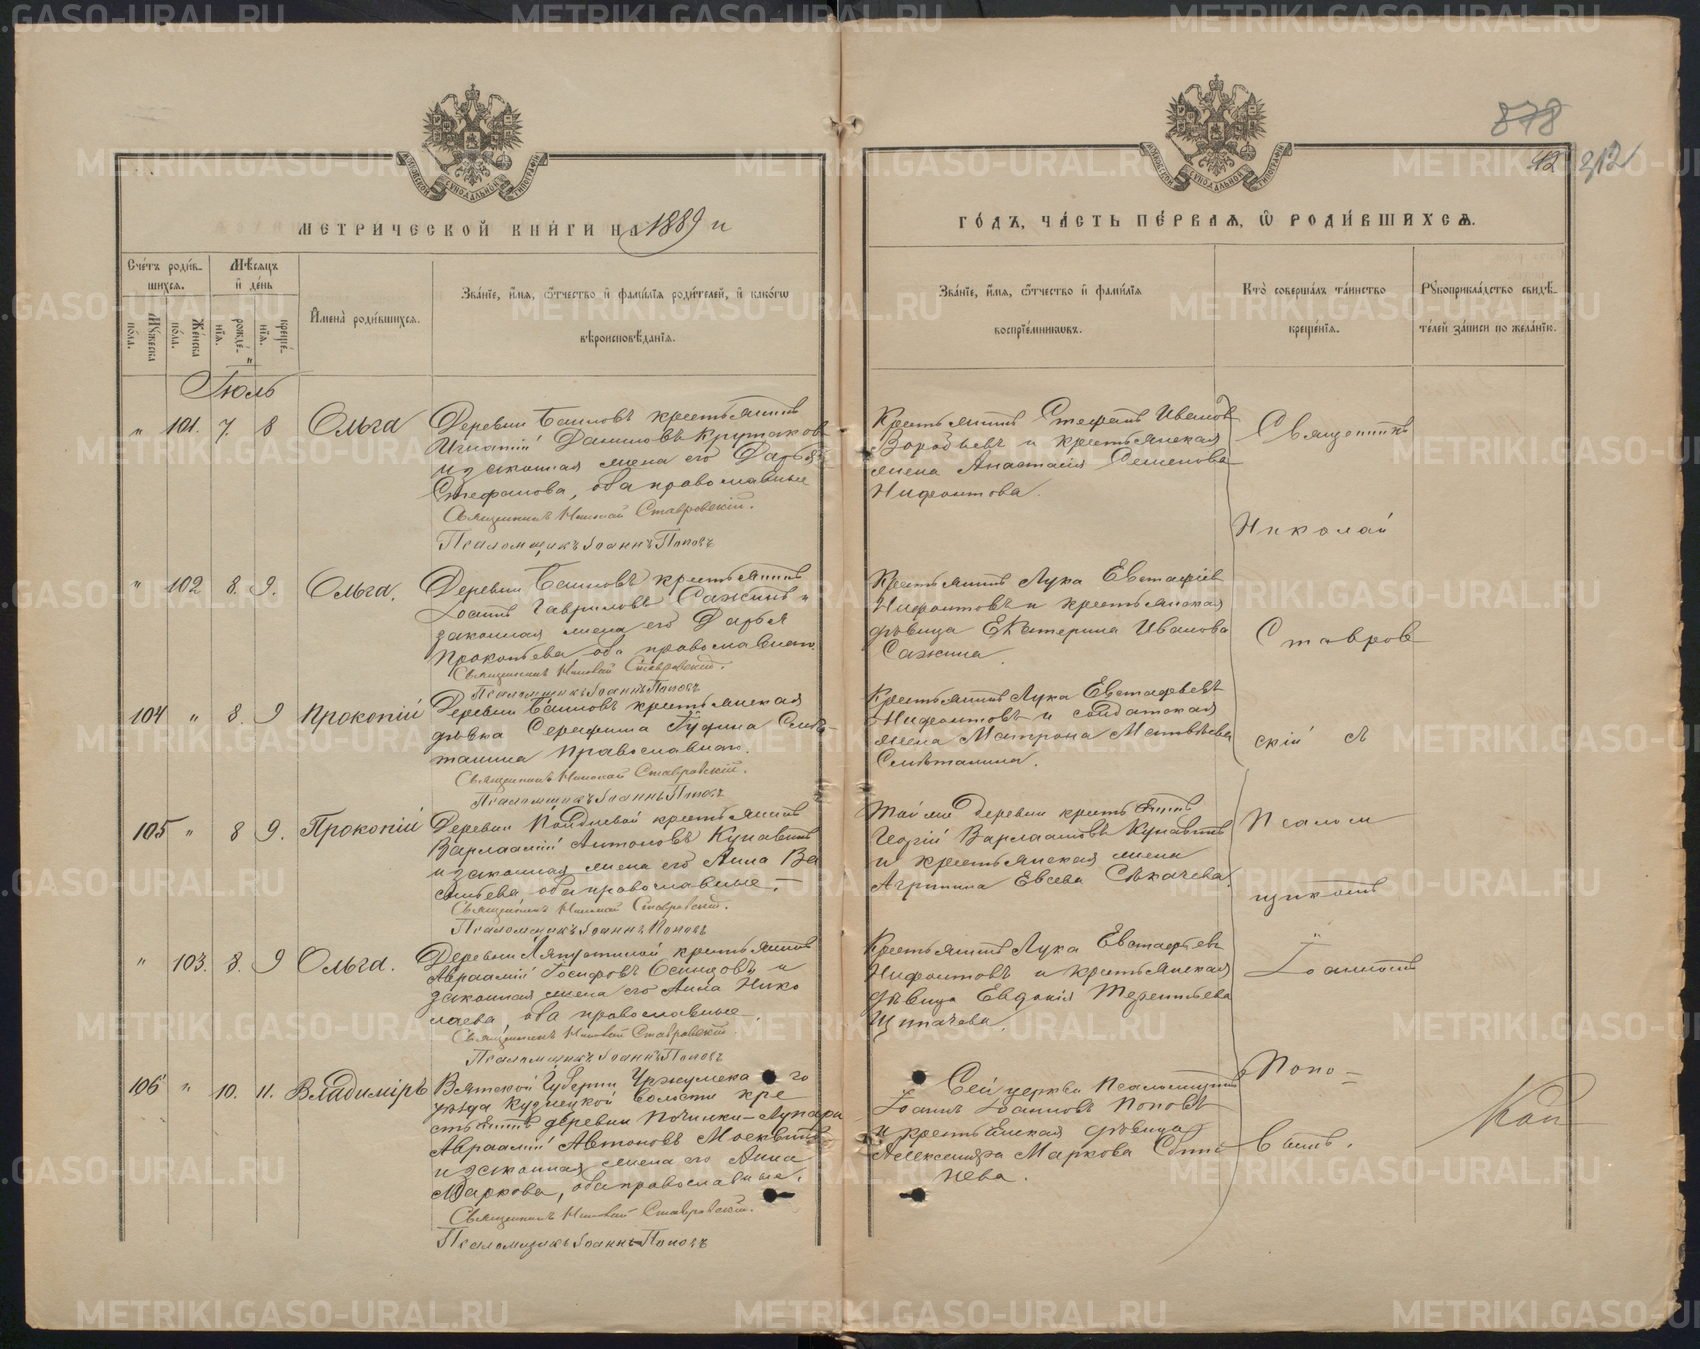 878
42 212
МЕТРИЧЕСКОЙ КНИ́ГИ НА 1889 и
ГО́ДЪ, ЧА́СТЬ ПЕ́РВАЯ, Ѡ҆ РОДИ́ВШИХСѦ.
Сче́тъ роди́в-
шихсѧ.
Мѣ́сѧцъ
и҆ де́нь
Мꙋ́жеска по́ла.
Же́нска по́ла.
рожде́-
нїѧ.
креще́-
нїѧ.
И҆мена̀ роди́вшихсѧ.
Зва́нїе, и҆́мѧ, ѻ҆́тчество и҆ фами́лїѧ роди́телей, и҆ како́гѡ
вѣроисповѣ́данїѧ.
Зва́нїе, и҆́мѧ, ѻ҆́тчество и҆ фами́лїѧ
воспрїе́мникѡвъ.
Кто̀ соверша́лъ та́инство
креще́нїѧ.
Рꙋкоприкла́дство свидѣ́-
телей за́писи по жела́нїю.
Іюль
" 101. 7. 8 Ольга
Деревни Баиновъ крестьянинъ
Игнатій Даниловъ Крутаковъ
и законная жена его Дарья
Стефанова, оба православные
Священникъ Николай Ставровскій.
Псаломщикъ Іоаннъ Поповъ
Крестьянинъ Стефанъ Ивановъ
Воробьевъ и крестьянская
жена Анастасія Семенова
Нифонтова.
" 102 8. 9. Ольга.
Деревни Баиновъ крестьянинъ
Іоаннъ Гавриловъ Сажинъ и
законная жена его Дарья
Прокопьева оба православнаго
Священникъ Николай Ставровскій.
Псаломщикъ Іоаннъ Поповъ
Крестьянинъ Лука Евстафіев
Нифонтовъ и крестьянская
дѣвица Екатерина Иванова
Сажина.
104 " 8. 9 Прокопій
Деревни Баиновъ крестьянская
дѣвка Серафима Гудина Смѣ-
танина православнаго.
Священникъ Николай Ставровскій.
Псаломщикъ Іоаннъ Поповъ
Крестьянинъ Лука Евстафьевъ
Нифонтовъ и солдатская
жена Матрона Матвѣева
Смѣтанина.
105 " 8 9. Прокопій
Деревни крестьянинъ
Варлаамій Антоновъ Кунавинъ
и законная жена его Анна Ва
сильева, оба православные. —
Священникъ Николай Ставровскій.
Псаломщикъ Іоаннъ Поповъ
Той же деревни крестьянинъ
Георгій Варлаамовъ Кунавинъ
и крестьянская жена
Агрипина Евсева Сѣкачева.
" 103. 8. 9 Ольга.
Деревни крестьянинъ
Авраамій Іосифовъ Осинцовъ и
законная жена его Анна Нико
лаева, оба православные.
Священникъ Николай Ставровскій.
Псаломщикъ Іоаннъ Поповъ
Крестьянинъ Лука Евстафьев
Нифонтовъ и крестьянская
дѣвица Евдокія Терентьева
Щипачева.
106 " 10. 11. Владиміръ
Вятской Губерніи Уржумска го
уѣзда Кузнецкой волости кре
стьянинъ деревни Починки-
Авраамій Автоновъ Москвинъ
и законная жена его Анна
Маркова, оба православные.
Священникъ Николай Ставровскій.
Псаломщикъ Іоаннъ Поповъ
Сей церкви Псаломщикъ
Іоаннъ Іоанновъ Поповъ
и крестьянская дѣвица
Александра Маркова
нева.
Священникъ
Николай
Ставров
скій съ
Псалом
щикомъ
Іоанномъ
Попо=
вымъ.
Коп
METRIKI.GASO-URAL.RU